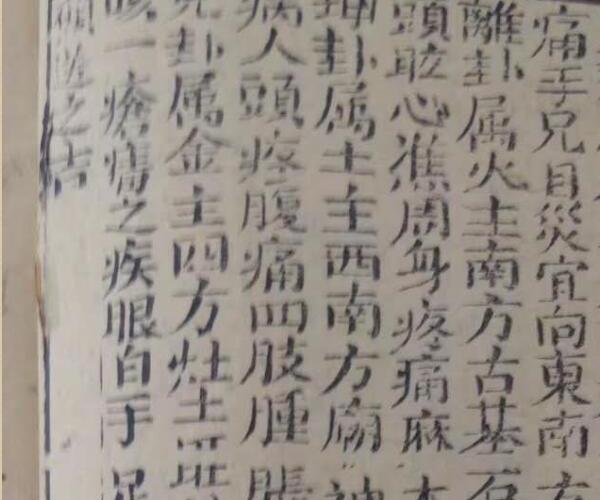 痛手兄目災宜向東南方
離卦属火主南方古基石
頭眩心焦周身疼痛麻木
坤卦属土主西南方廟神
病人頭疼腹痛四肢腫脹
兌卦属金主四方灶土
咳一瘡瘍之疾眼自手足
之吉